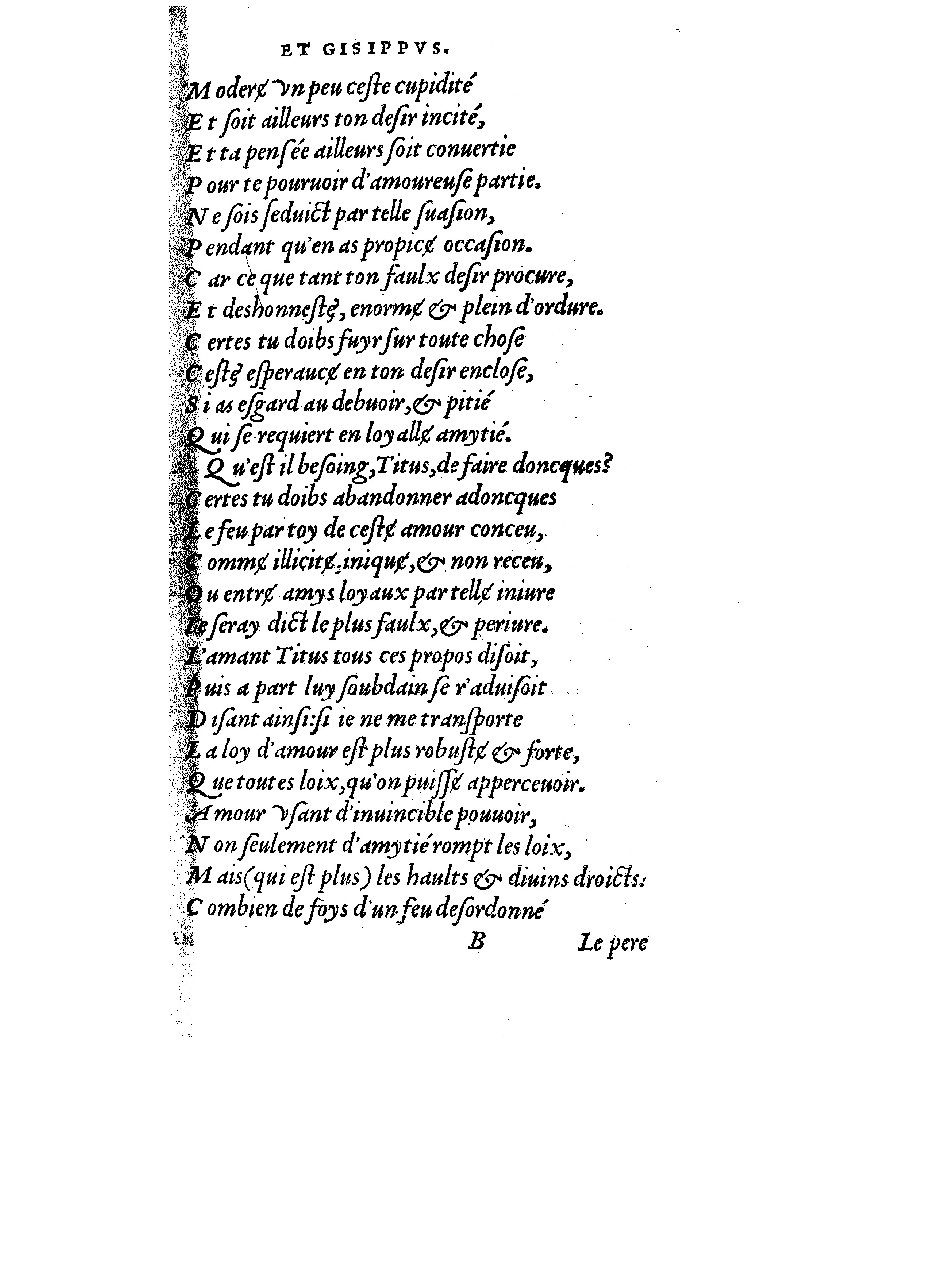 ET GISIPPVS.
Moderɇ vn peu ceſte cupidité
Et ſoit ailleurs ton deſir incité,
Et ta penſée ailleurs ſoit conuertie
Pour te pouruoir d'amoureuſe partie.
Ne ſois ſeduict par telle ſuaſion,
Pendant qu'en as propicɇ occaſion.
Car ce que tant ton faulx deſir procure,
Et deshonneſtɇ, enormɇ & plein d'ordure.
Certes tu doibs fuyr ſur toute choſe
Ceſtɇ eſperaucɇ en ton deſir encloſe,
Si as eſgard au debuoir, & pitié
Qui ſe requiert en loyallɇ amytié.
Qu'eſt il beſoing, Titus, de faire doncques?
Certes tu doibs abandonner adoncques
Le feu par toy de ceſtɇ amour conceu,
Commɇ illicitɇ, iniquɇ, & non receu,
Ou entrɇ amys loyaux par tellɇ iniure
Ie ſeray dict le plus faulx, & periure.
L'amant Titus tous ces propos diſoit,
Puis a part luy ſoubdain ſe r'aduiſoit
Diſant ainſi: ſi ie ne me tranſporte
La loy d'amour eſt plus robuſtɇ & forte,
Que toutes loix, qu'on puiſſɇ apperceuoir.
Amour vſant d'inuincible pouuoir,
Non ſeulement d'amytié rompt les loix,
Mais (qui eſt plus) les haults & diuins droicts:
Combien de foys d'un feu deſordonné
B Le pere